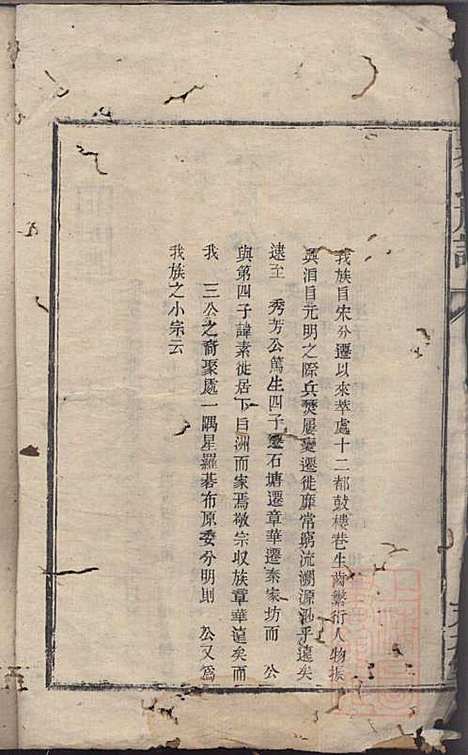 我族自宋分遷以來萃處十二都鼓樓巷生齒繁衍人物振
興洎自元明之際兵燹屢變遷徙靡常窮流溯源渺乎遠矣
逮至　秀芳公萬生四子遷石塘遷章華遷秦家坊而　公
與第四子諱素徙居下自洲而家焉敬宗收族章華遠矣而
我　三公之裔聚處一隅星羅碁布原委分明則　公又爲
我族之小宗云